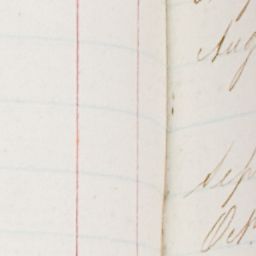 Aug
Sep
Oct